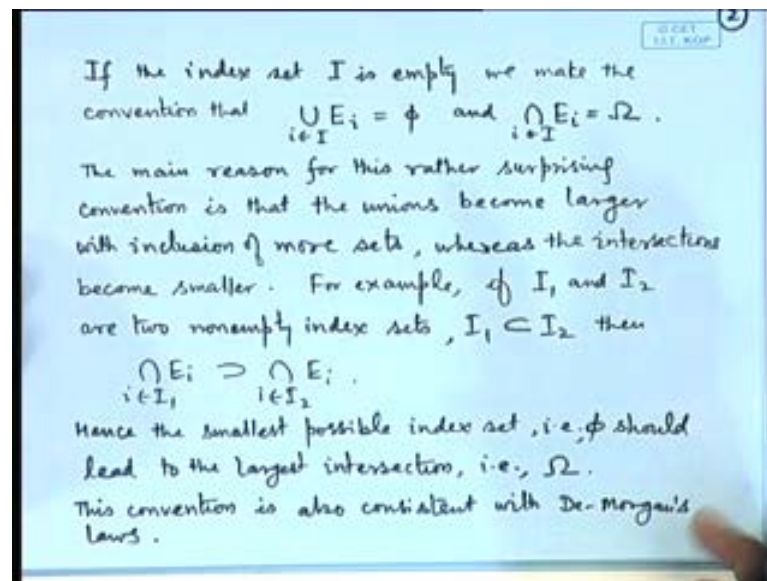 2
© CET
I.I.T. KGP
If the index set I is empty we make the
convention that ∪ Eᵢ = ϕ and ∩ Eᵢ = Ω .
i∈I i∈I
The main reason for this rather surprising
convention is that the unions become larger
with inclusion of more sets, whereas the intersections
become smaller. For example, if I₁ and I₂
are two nonempty index sets, I₁ ⊂ I₂ then
∩ Eᵢ ⊃ ∩ Eᵢ .
i∈I₁ i∈I₂
Hence the smallest possible index set, i.e, ϕ should
lead to the largest intersection, i.e., Ω.
This convention is also consistent with De-Morgan's
laws .